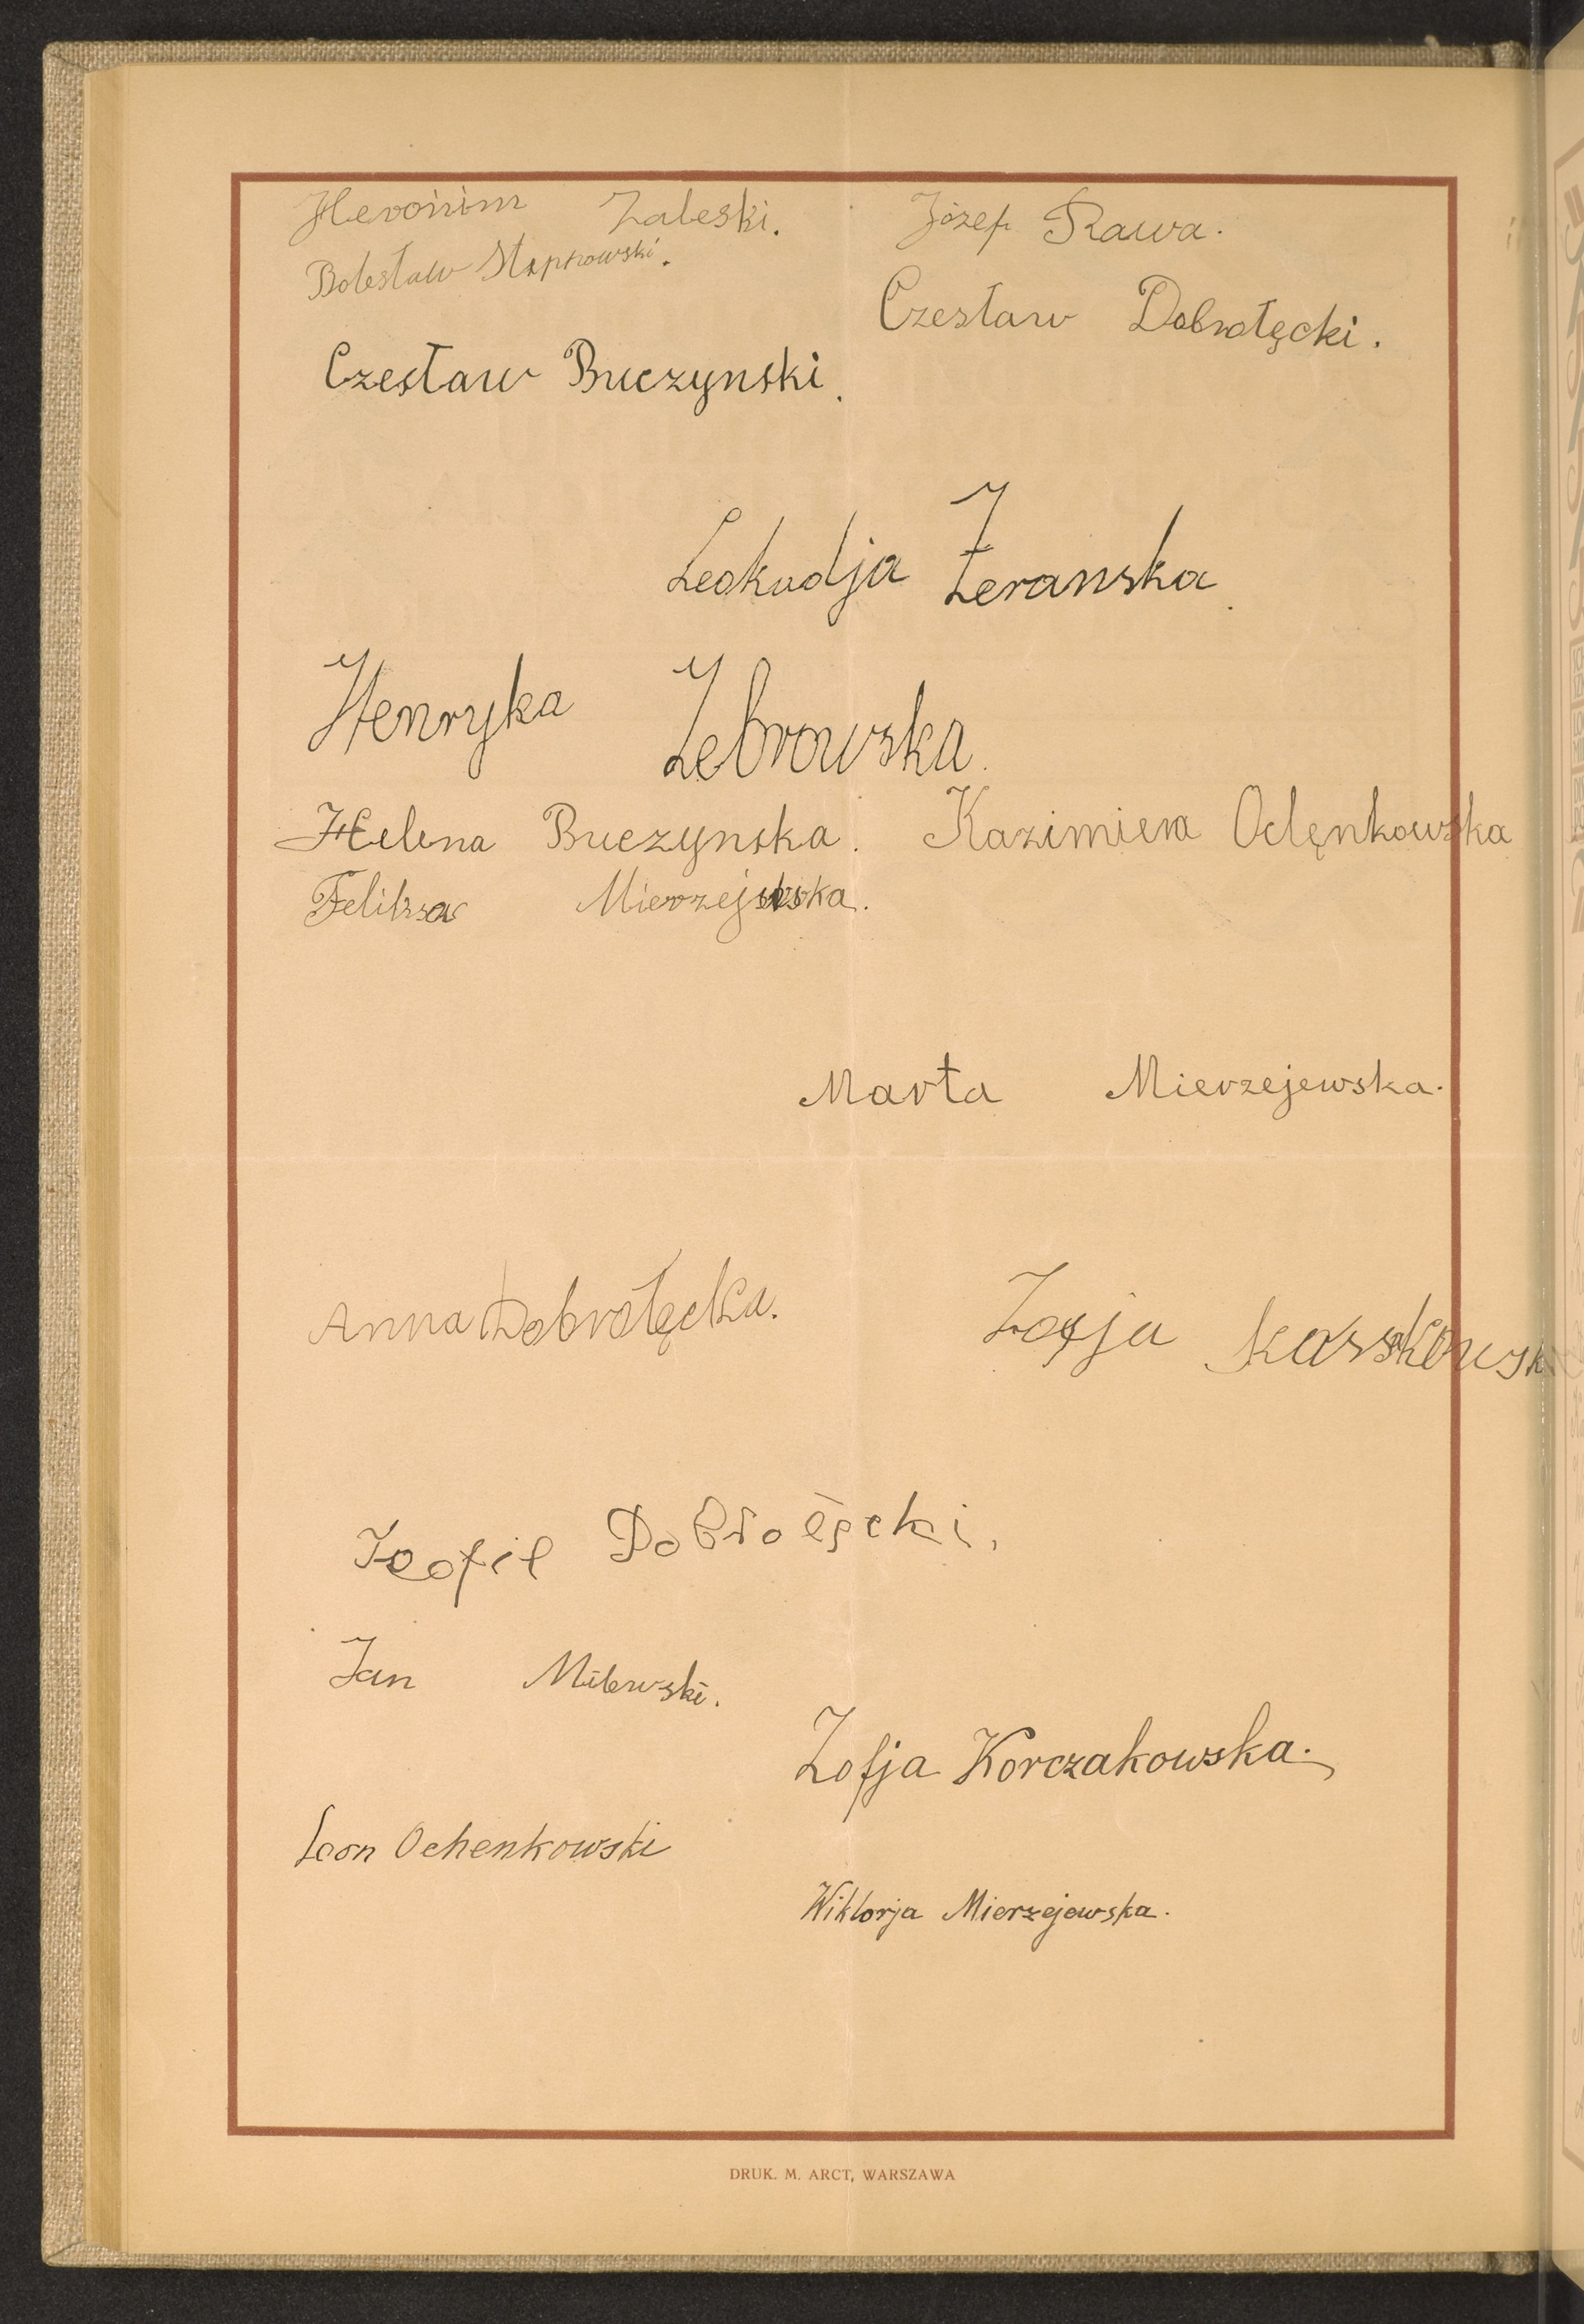 Heronim Zaleski. Józef Rawa.
Bolesław
Czesław Dobrołęcki.
Czesław Buczynski.
Leokadja Żeranska.
Henryka Żebrowska.
Helena Buczynska. Kazimiera Ochęnkowska
Feliksa Mierzejewska.
Marta Mierzejewska.
Anna Dobrołęcka.
Zofja
Teofil Dobrołęcki.
Jan Milewski.
Zofja Korczakowska.
Leon Ochenkowski
Wiktorja Mierzejewska.
DRUK. M. ARCT, WARSZAWA